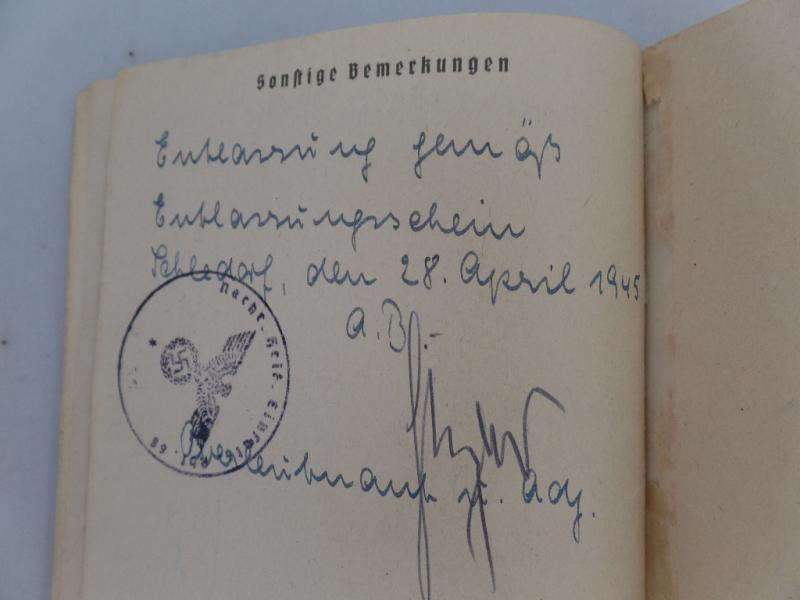 Sonstige Bemerkungen
Entlassung gemäß
Entlassungsschein
Schledorf, den 28. April 1945
A.B.-
Oberleutnant u. Adj.
Nachr.